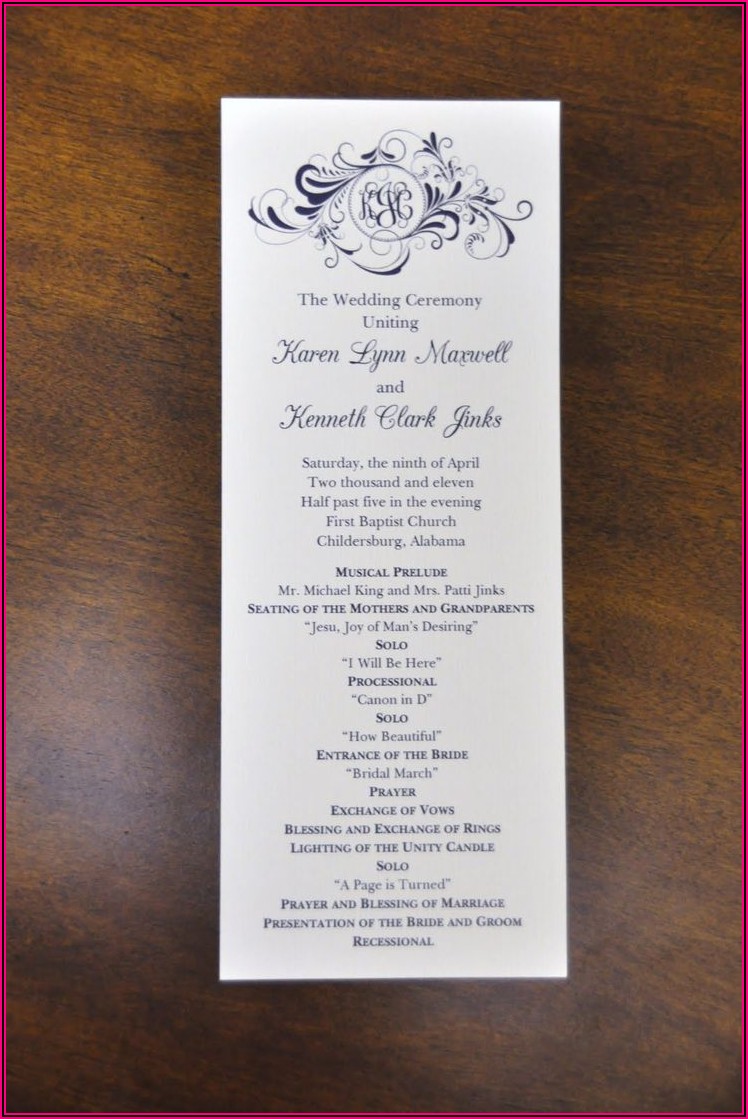 KJC
The Wedding Ceremony
Uniting
Karen Lynn Maxwell
and
Kenneth Clark Jinks
Saturday, the ninth of April
Two thousand and eleven
Half past five in the evening
First Baptist Church
Childersburg, Alabama
MUSICAL PRELUDE
Mr. Michael King and Mrs. Patti Jinks
SEATING OF THE MOTHERS AND GRANDPARENTS
“Jesu, Joy of Man’s Desiring”
SOLO
“I Will Be Here”
PROCESSIONAL
“Canon in D”
SOLO
“How Beautiful”
ENTRANCE OF THE BRIDE
“Bridal March”
PRAYER
EXCHANGE OF VOWS
BLESSING AND EXCHANGE OF RINGS
LIGHTING OF THE UNITY CANDLE
SOLO
“A Page is Turned”
PRAYER AND BLESSING OF MARRIAGE
PRESENTATION OF THE BRIDE AND GROOM
RECESSIONAL